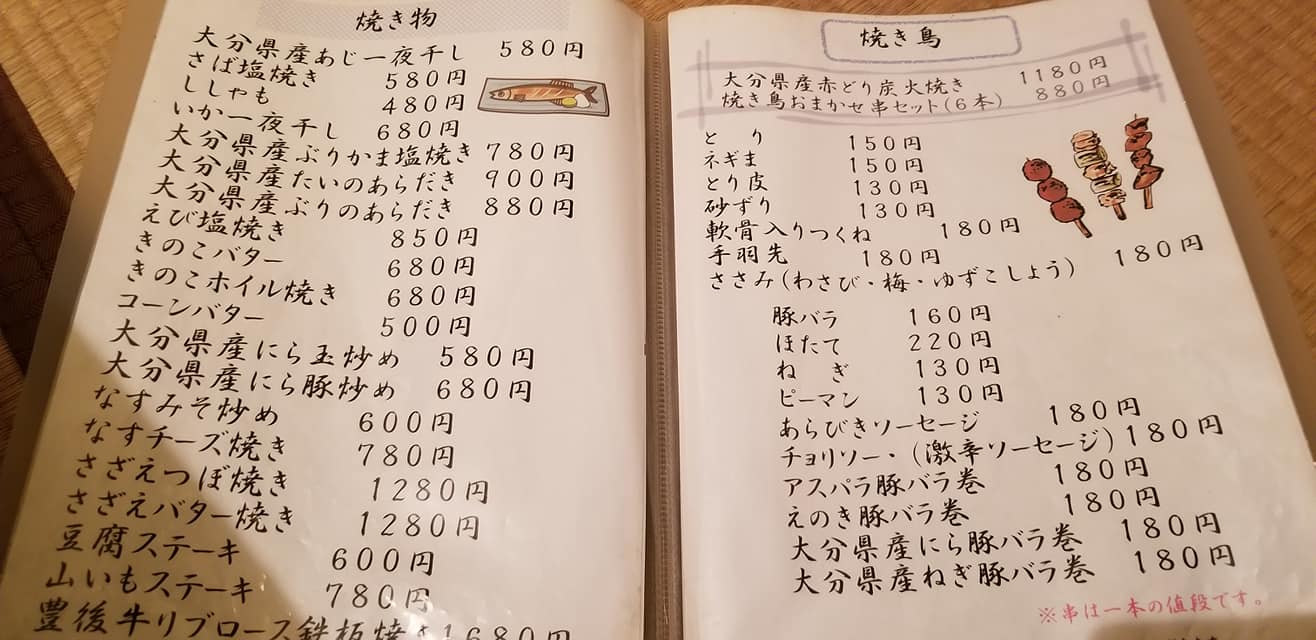 焼き物
大分県産あじ一夜干し 580円
さば塩焼き 580円
ししゃも 480円
いか一夜干し 680円
大分県産ぶりかま塩焼き 780円
大分県産たいのあらだき 900円
大分県産ぶりのあらだき 880円
えび塩焼き 850円
きのこバター 680円
きのこホイル焼き 680円
コーンバター 500円
大分県産にら玉炒め 580円
大分県産にら豚炒め 680円
なすみそ炒め 600円
なすチーズ焼き 780円
さざえつぼ焼き 1280円
さざえバター焼き 1280円
豆腐ステーキ 600円
山いもステーキ 780円
豊後牛リブロース鉄板焼き 1680円
焼き鳥
大分県産赤どり炭火焼き 1180円
焼き鳥おまかせ串セット(6本) 880円
とり 150円
ネギま 150円
とり皮 130円
砂ずり 130円
軟骨入りつくね 180円
手羽先 180円
ささみ(わさび・梅・ゆずこしょう) 180円
豚バラ 160円
ほたて 220円
ねぎ 130円
ピーマン 130円
あらびきソーセージ 180円
チョリソー・(激辛ソーセージ) 180円
アスパラ豚バラ巻 180円
えのき豚バラ巻 180円
大分県産にら豚バラ巻 180円
大分県産ねぎ豚バラ巻 180円
※串は一本の値段です。